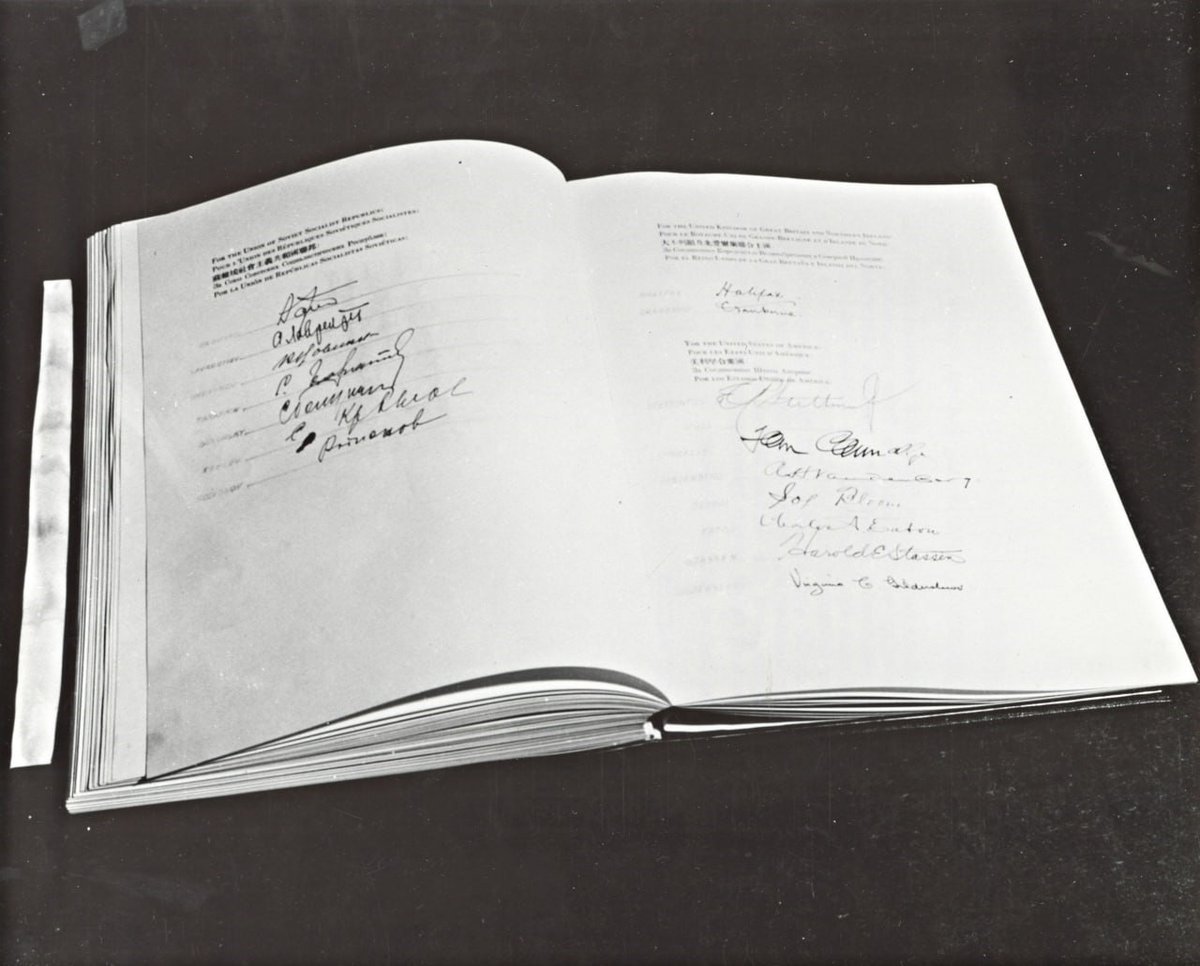 FOR THE UNION OF SOVIET SOCIALIST REPUBLICS:
POUR L'UNION DES RÉPUBLIQUES SOVIÉTIQUES SOCIALISTES:
蘇維埃社會主義共和國聯邦:
За Союз Советских Социалистических Республик:
POR LA UNIÓN DE REPÚBLICAS SOCIALISTAS SOVIÉTICAS:
А Лаврентьев
FOR THE UNITED KINGDOM OF GREAT BRITAIN AND NORTHERN IRELAND:
POUR LE ROYAUME-UNI DE GRANDE-BRETAGNE ET D'IRLANDE DU NORD:
大不列顛及北愛爾蘭聯合王國:
За Соединенное Королевство Великобритании и Северной Ирландии:
POR EL REINO UNIDO DE LA GRAN BRETAÑA E IRLANDA DEL NORTE:
Halifax.
Cranborne
FOR THE UNITED STATES OF AMERICA:
POUR LES ETATS-UNIS D'AMÉRIQUE:
美利堅合衆國:
За Соединенные Штаты Америки:
POR LOS ESTADOS UNIDOS DE AMÉRICA:
Tom Connally
A H Vandenberg.
Sol Bloom
Charles A Eaton
Harold E Stassen
Virginia C. Gildersleeve